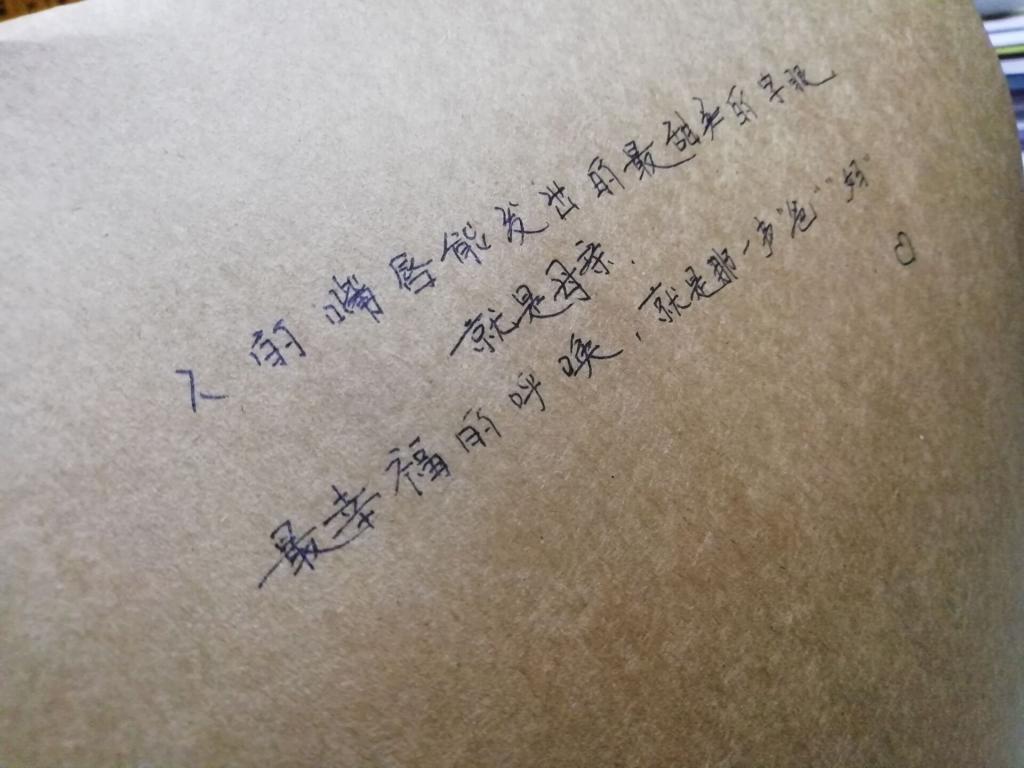 人的嘴唇能发出的最甜美的字眼
就是母亲.
最幸福的呼唤,就是那一声"爸""妈"。